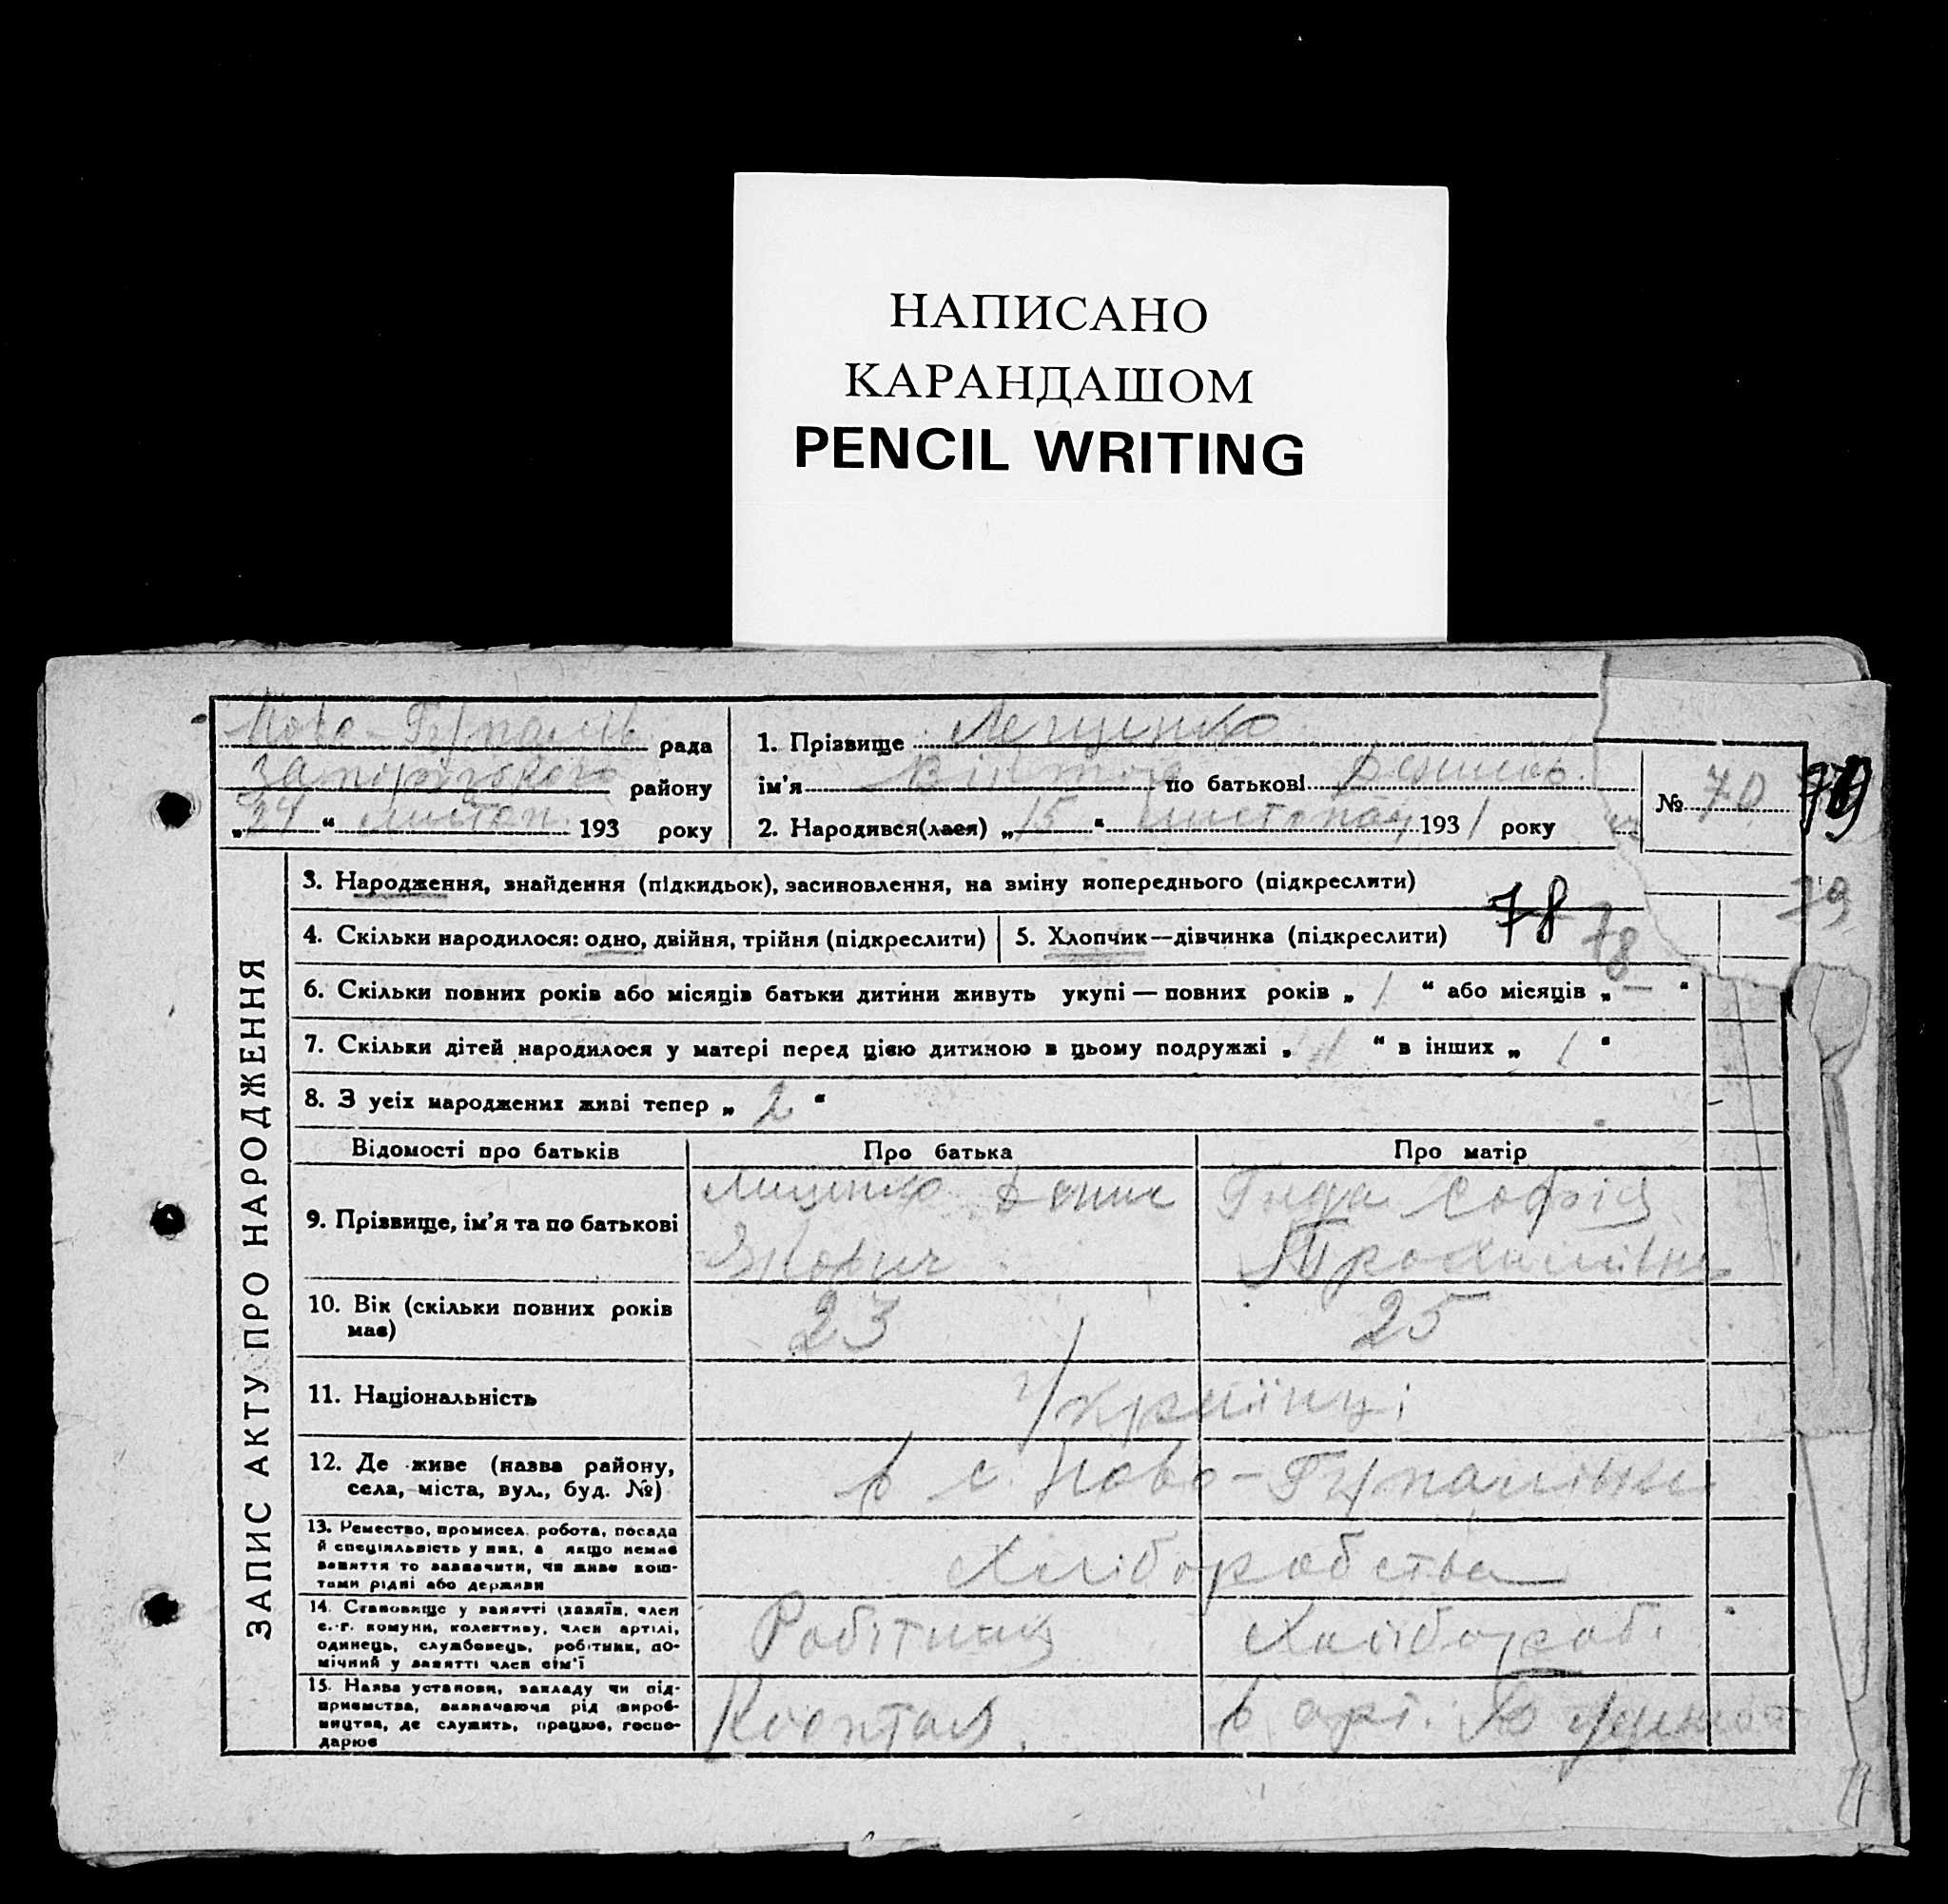 НАПИСАНО
КАРАНДАШОМ
PENCIL WRITING
Ново-Гупалів рада
Запорізького району
„24“ листоп. 193 року
1. Прізвище Лещенко
ім'я Віктор по батькові Денисов.
2. Народився(лася) „15“ листопад 1931 року
№ 70
79
79
3. Народження, знайдення (підкидьок), засиновлення, на зміну попереднього (підкреслити)
78
78
4. Скільки народилося: одно, двійня, трійня (підкреслити)
5. Хлопчик—дівчинка (підкреслити)
6. Скільки повних років або місяців батьки дитини живуть укупі — повних років „1“ або місяців „—“
7. Скільки дітей народилося у матері перед цією дитиною в цьому подружжі „1“ в інших „1“
8. З усіх народжених живі тепер „2“
ЗАПИС АКТУ ПРО НАРОДЖЕННЯ
Відомості про батьків Про батька Про матір
9. Прізвище, ім'я та по батькові
Лищенко Денис
Гнда Софія
10. Вік (скільки повних років має)
23 25
11. Національність
Українці
12. Де живе (назва району,
села, міста, вул., буд. №)
в с. Ново-Гупалівки
13. Ремество, промисел, робота, посада
й спеціяльність у них, а якщо немає
заняття то зазначити, чи живе кош-
тами рідні або держави
Хліборобства
14. Становище у занятті (хазяїн, член
с.-г. комуни, колективу, член артілі,
одинець, службовець, робітник, по-
мічний у занятті член сім'ї
Робітник
Хлібороб.
15. Назва установи, закладу чи під-
приємства, зазначаючи рід вироб-
ництва, де служить, працює, госпо-
дарює
в арт.